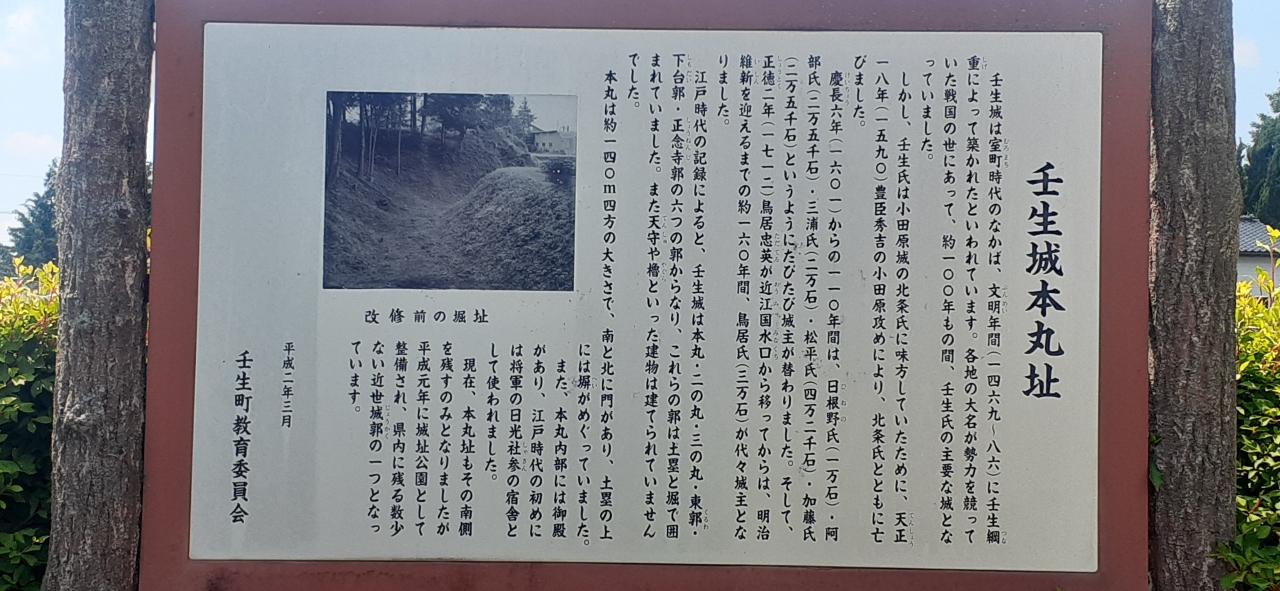 壬生城本丸址
壬生城は室町時代のなかば、文明年間(一四六九~八六)に壬生綱
重によって築かれたといわれています。各地の大名が勢力を競って
いた戦国の世にあって、約一〇〇年もの間、壬生氏の主要な城とな
っていました。
しかし、壬生氏は小田原城の北条氏に味方していたために、天正
一八年(一五九〇)豊臣秀吉の小田原攻めにより、北条氏とともに亡
びました。
慶長六年(一六〇一)からの一一〇年間は、日根野氏(一万石)・阿
部氏(二万五千石)・三浦氏(二万石)・松平氏(四万二千石)・加藤氏
(二万五千石)というようにたびたび城主が替わりました。そして、
正徳二年(一七一二)鳥居忠英が近江国水口から移ってからは、明治
維新を迎えるまでの約一六〇年間、鳥居氏(三万石)が代々城主とな
りました。
江戸時代の記録によると、壬生城は本丸・二の丸・三の丸・東郭・
下台郭・正念寺郭の六つの郭からなり、これらの郭は土塁と堀で囲
まれていました。また天守や櫓といった建物は建てられていません
でした。
本丸は約一四〇m四方の大きさで、南と北に門があり、土塁の上
には塀がめぐっていました。
また、本丸内部には御殿
があり、江戸時代の初めに
は将軍の日光社参の宿舎と
して使われました。
現在、本丸址もその南側
を残すのみとなりましたが
平成元年に城址公園として
整備され、県内に残る数少
ない近世城郭の一つとなっ
ています。
改修前の堀址
平成二年三月
壬生町教育委員会